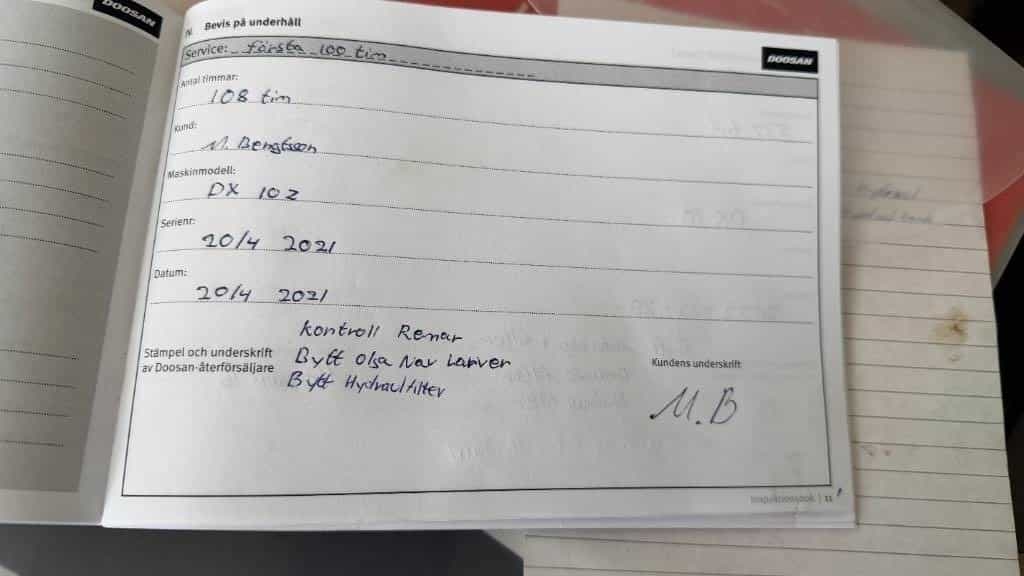 DOOSAN
IV. Bevis på underhåll
DOOSAN
Service: första 100 tim
Antal timmar:
108 tim
Kund:
M. Bengtsson
Maskinmodell:
DX 10z
Serienr:
20/4 2021
Datum:
20/4 2021
Kontroll Remar
Bytt Olja Nav Lariver
Bytt Hydraulfilter
Stämpel och underskrift
av Doosan-återförsäljare
Kundens underskrift
M.B
Inspektionsbok | 11